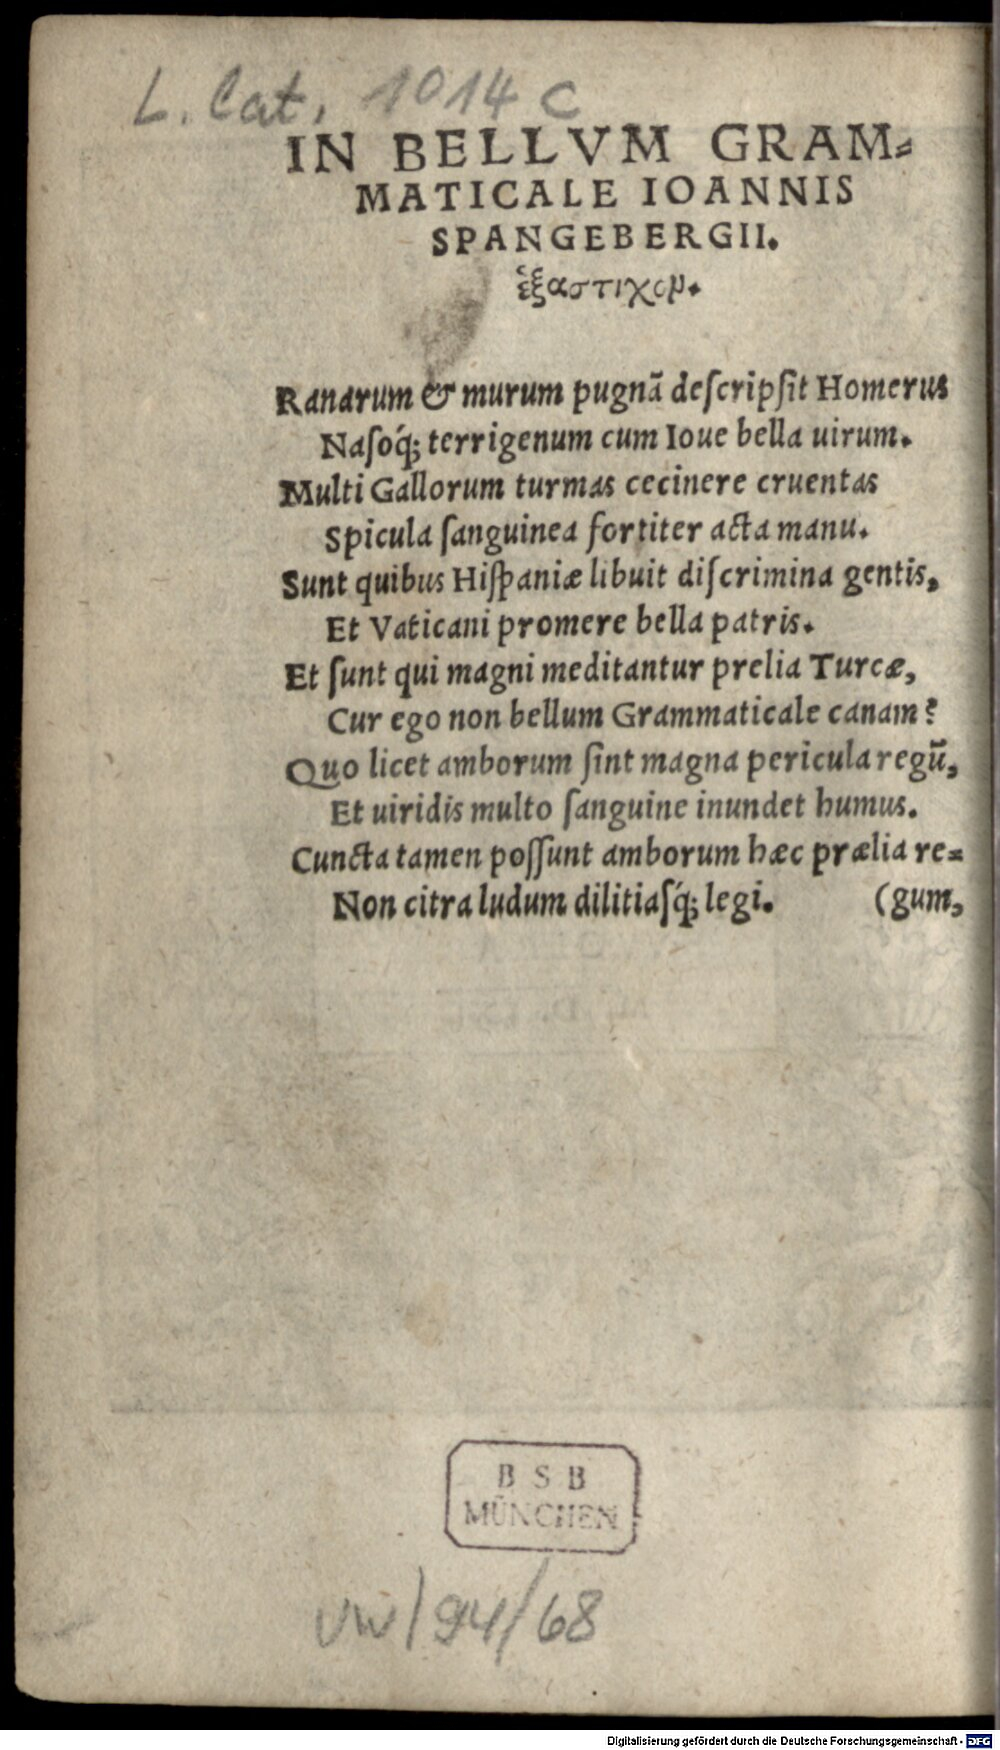 L. Cat. 1014 c
IN BELLVM GRAM⸗
MATICALE IOANNIS
SPANGEBERGII.
ἑξαστιχον.
Ranarum & murum pugnā deſcripſit Homerus
Naſoq́; terrigenum cum Ioue bella uirum.
Multi Gallorum turmas cecinere cruentas
Spicula ſanguinea fortiter acta manu.
Sunt quibus Hiſpaniæ libuit diſcrimina gentis,
Et Vaticani promere bella patris.
Et ſunt qui magni meditantur prelia Turcæ,
Cur ego non bellum Grammaticale canam?
Quo licet amborum ſint magna pericula regū,
Et uiridis multo ſanguine inundet humus.
Cuncta tamen poſſunt amborum hæc prælia re⸗
Non citra ludum dilitiaſq́; legi. (gum,
B S B
MÜNCHEN
VW/94/68
Digitalisierung gefördert durch die Deutsche Forschungsgemeinschaft - DFG